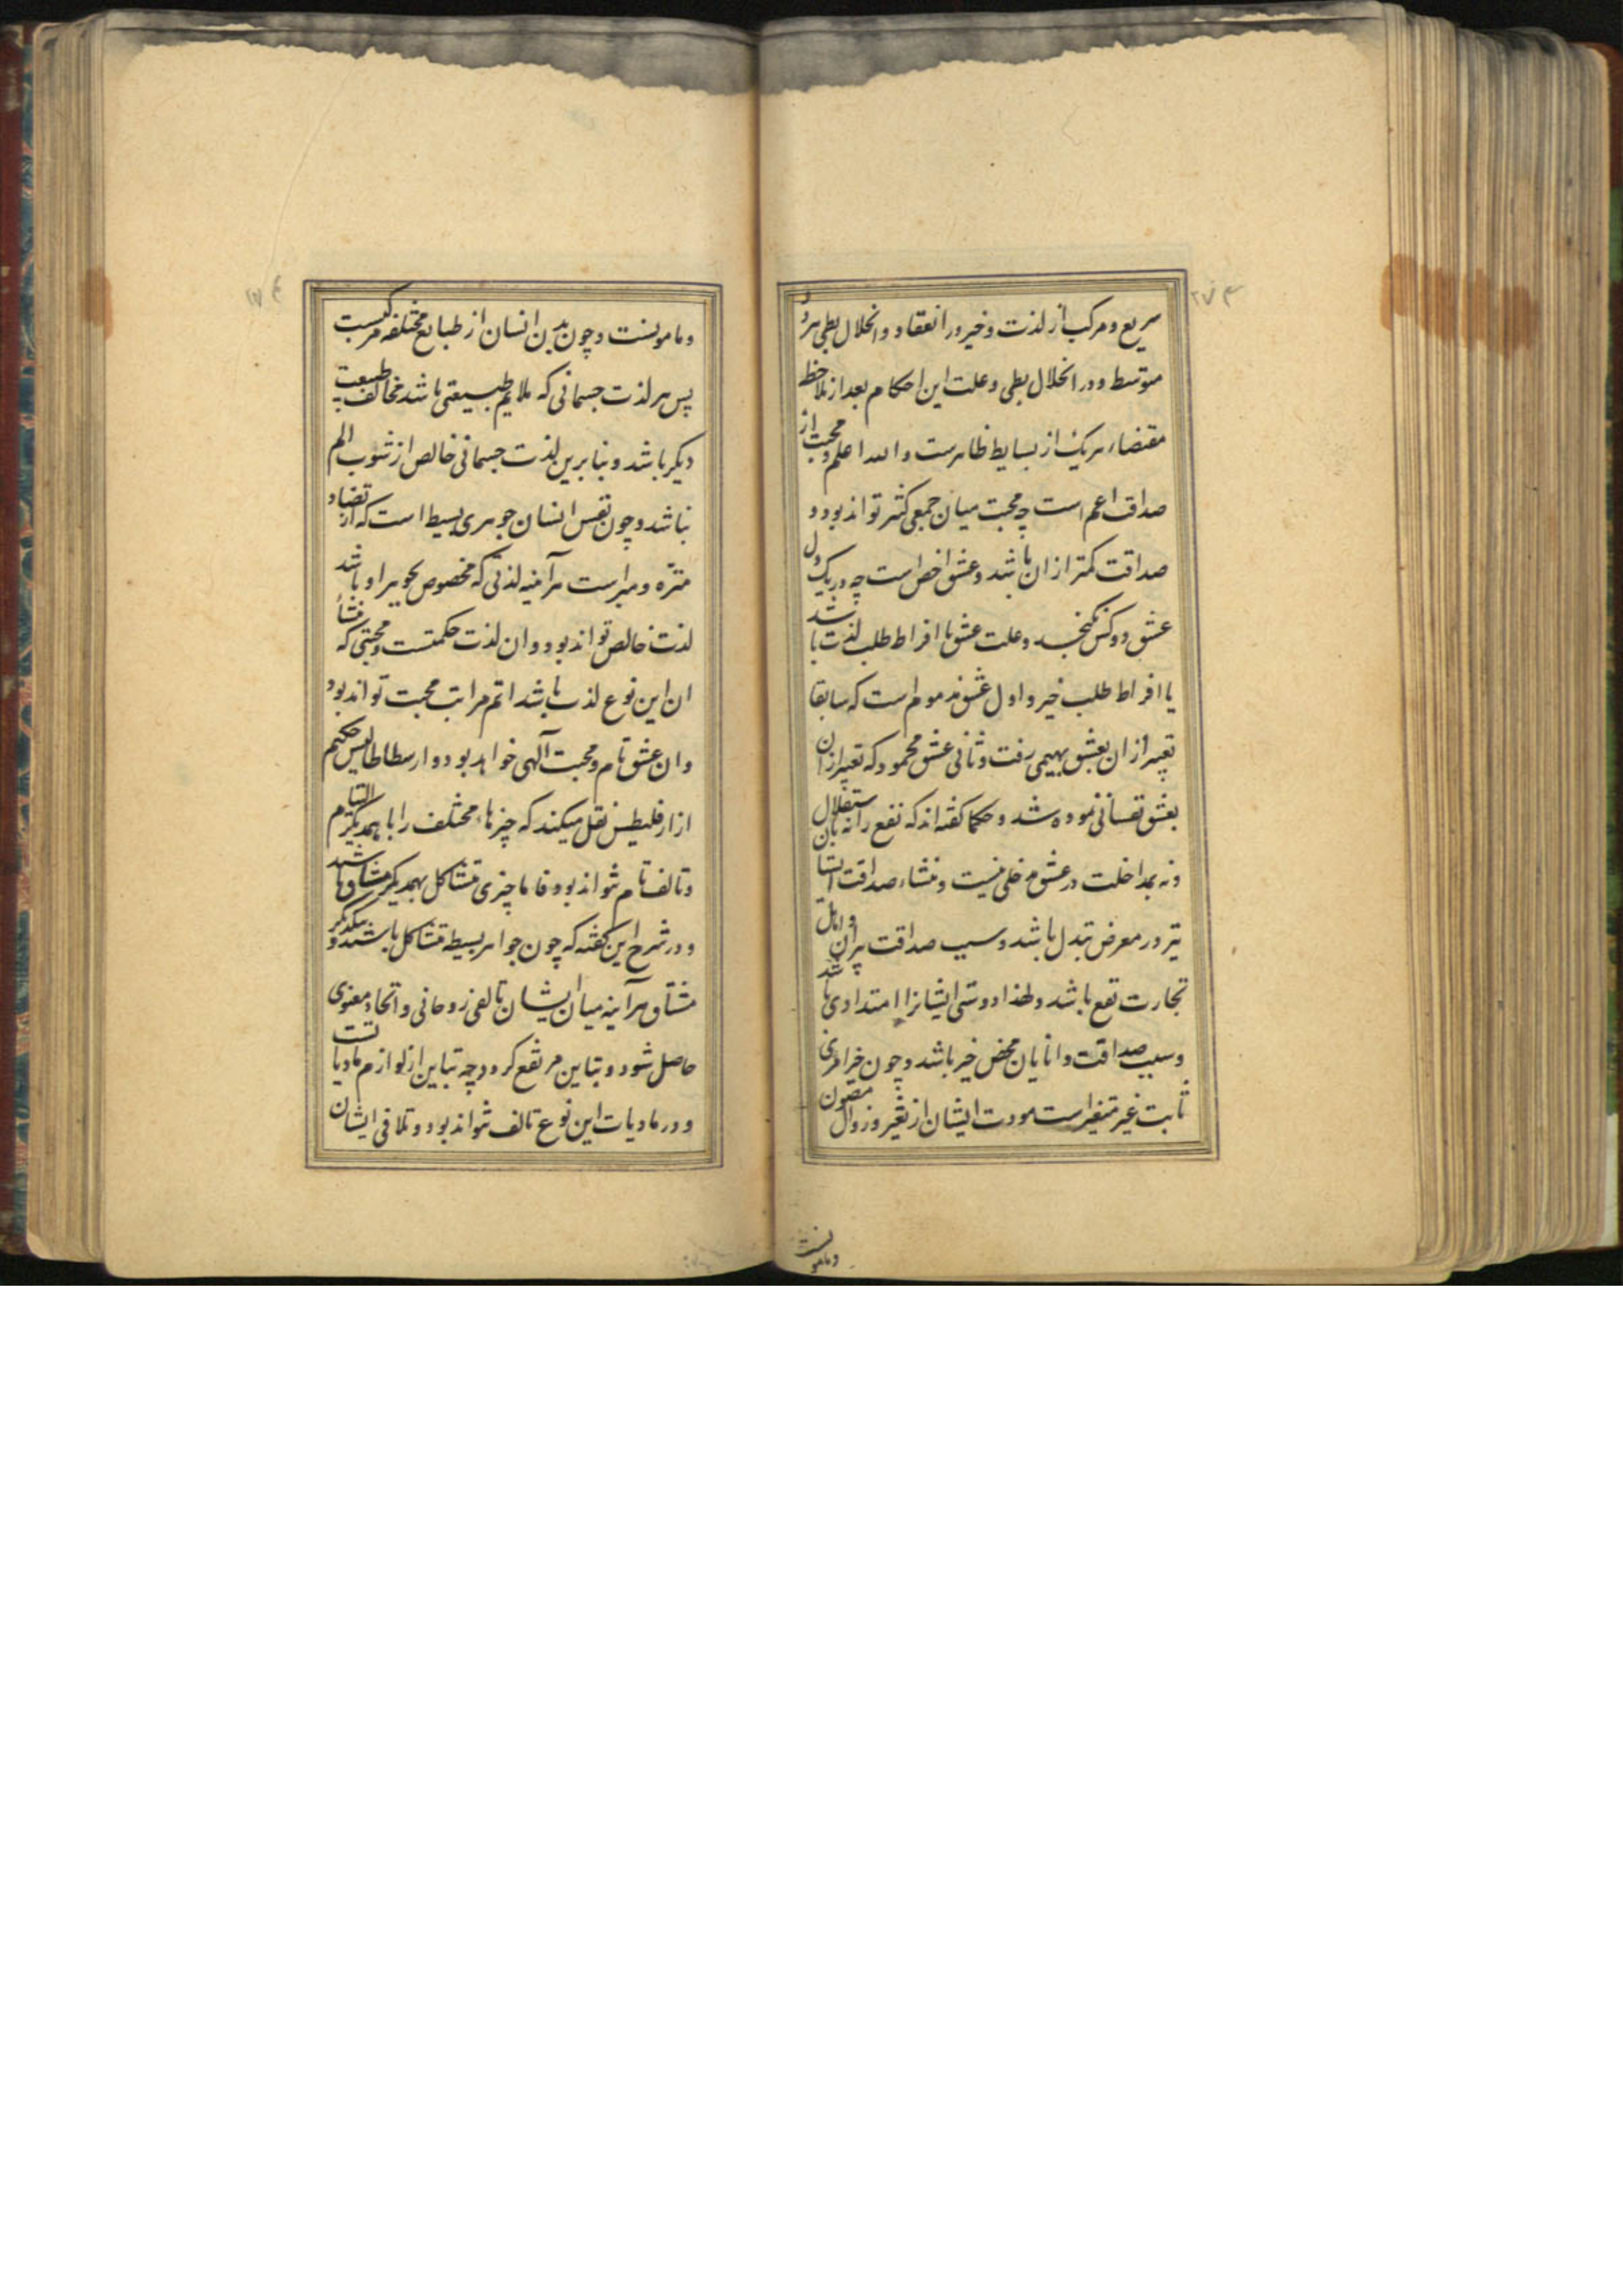 ۲۷۴
سریع و مرکب از لذت و خیر در انعقاد و انحلال بطی مرو
متوسط و در انحلال بطی و علت این احکام بعد از ملاحظ
مقتضاء هر یک از بسایط ظاهرست والله اعلم و محبت از
صداقت اعم است چه محبت میان جمعی کثیر تواند بود و
صداقت کمتر از ان باشد و عشق اخص است چه در یک دل
عشق دو کس نگنجد و علت عشق یا افراط طلب لذت باشد
یا افراط طلب خیر و اول عشق مذموم است که سابقا
تعبیر از ان بعشق بهیمی رفت و ثانی عشق محمود که تعبیر از ان
بعشق نفسانی نموده شد و حکما گفته اند که نفع را نه باستقلال
و نه بمداخلت در عشق مدخلی نیست و منشاء صداقت
تیر در معرض تبدل باشد و سبب صداقت پیران و اهل
تجارت نفع باشد و لهذا دوستی ایشانرا امتدادی باشد
و سبب صداقت دانایان محض خیر باشد و چون خیر امری
ثابت غیر متغیر است مودت ایشان از تغیر و زوال مصون
و مامونست
و مامونست و چون بدن انسان از طبایع مختلفه مرکبست
پس هر لذت جسمانی که ملایم طبیعتی باشد مخالف طبیعت
دیگر باشد و بنابرین لذت جسمانی خالص از شوب الم
نباشد و چون نفس انسان جوهری بسیط است که از تضاد
منزّه و مبراست هرآینه لذتی که مخصوص بجوهر او باشد
لذت خالص تواند بود و ان لذت حکمتست و محبتی که منشأ
ان این نوع لذت باشد اتم مراتب محبت تواند بود
و ان عشق تام و محبت آلهی خواهد بود و ارسطاطالیس حکیم
از ارقلیطس نقل میکند که چیزهاء مختلف را با همدیگر التیام
و تالف تام نتواند بود و فاما چیزی متشاکل بهمدیگر مشتاق باشد
و در شرح این گفته که چون جواهر بسیطه متشاکل باشند و بیکدیگر
مشتاق هرآینه میان ایشان تالفی روحانی و اتحاد معنوی
حاصل شود و تباین مرتفع گردد چه تباین از لوازم مادیاتست
و در مادیات این نوع تالف نتواند بود و تلاقی ایشان